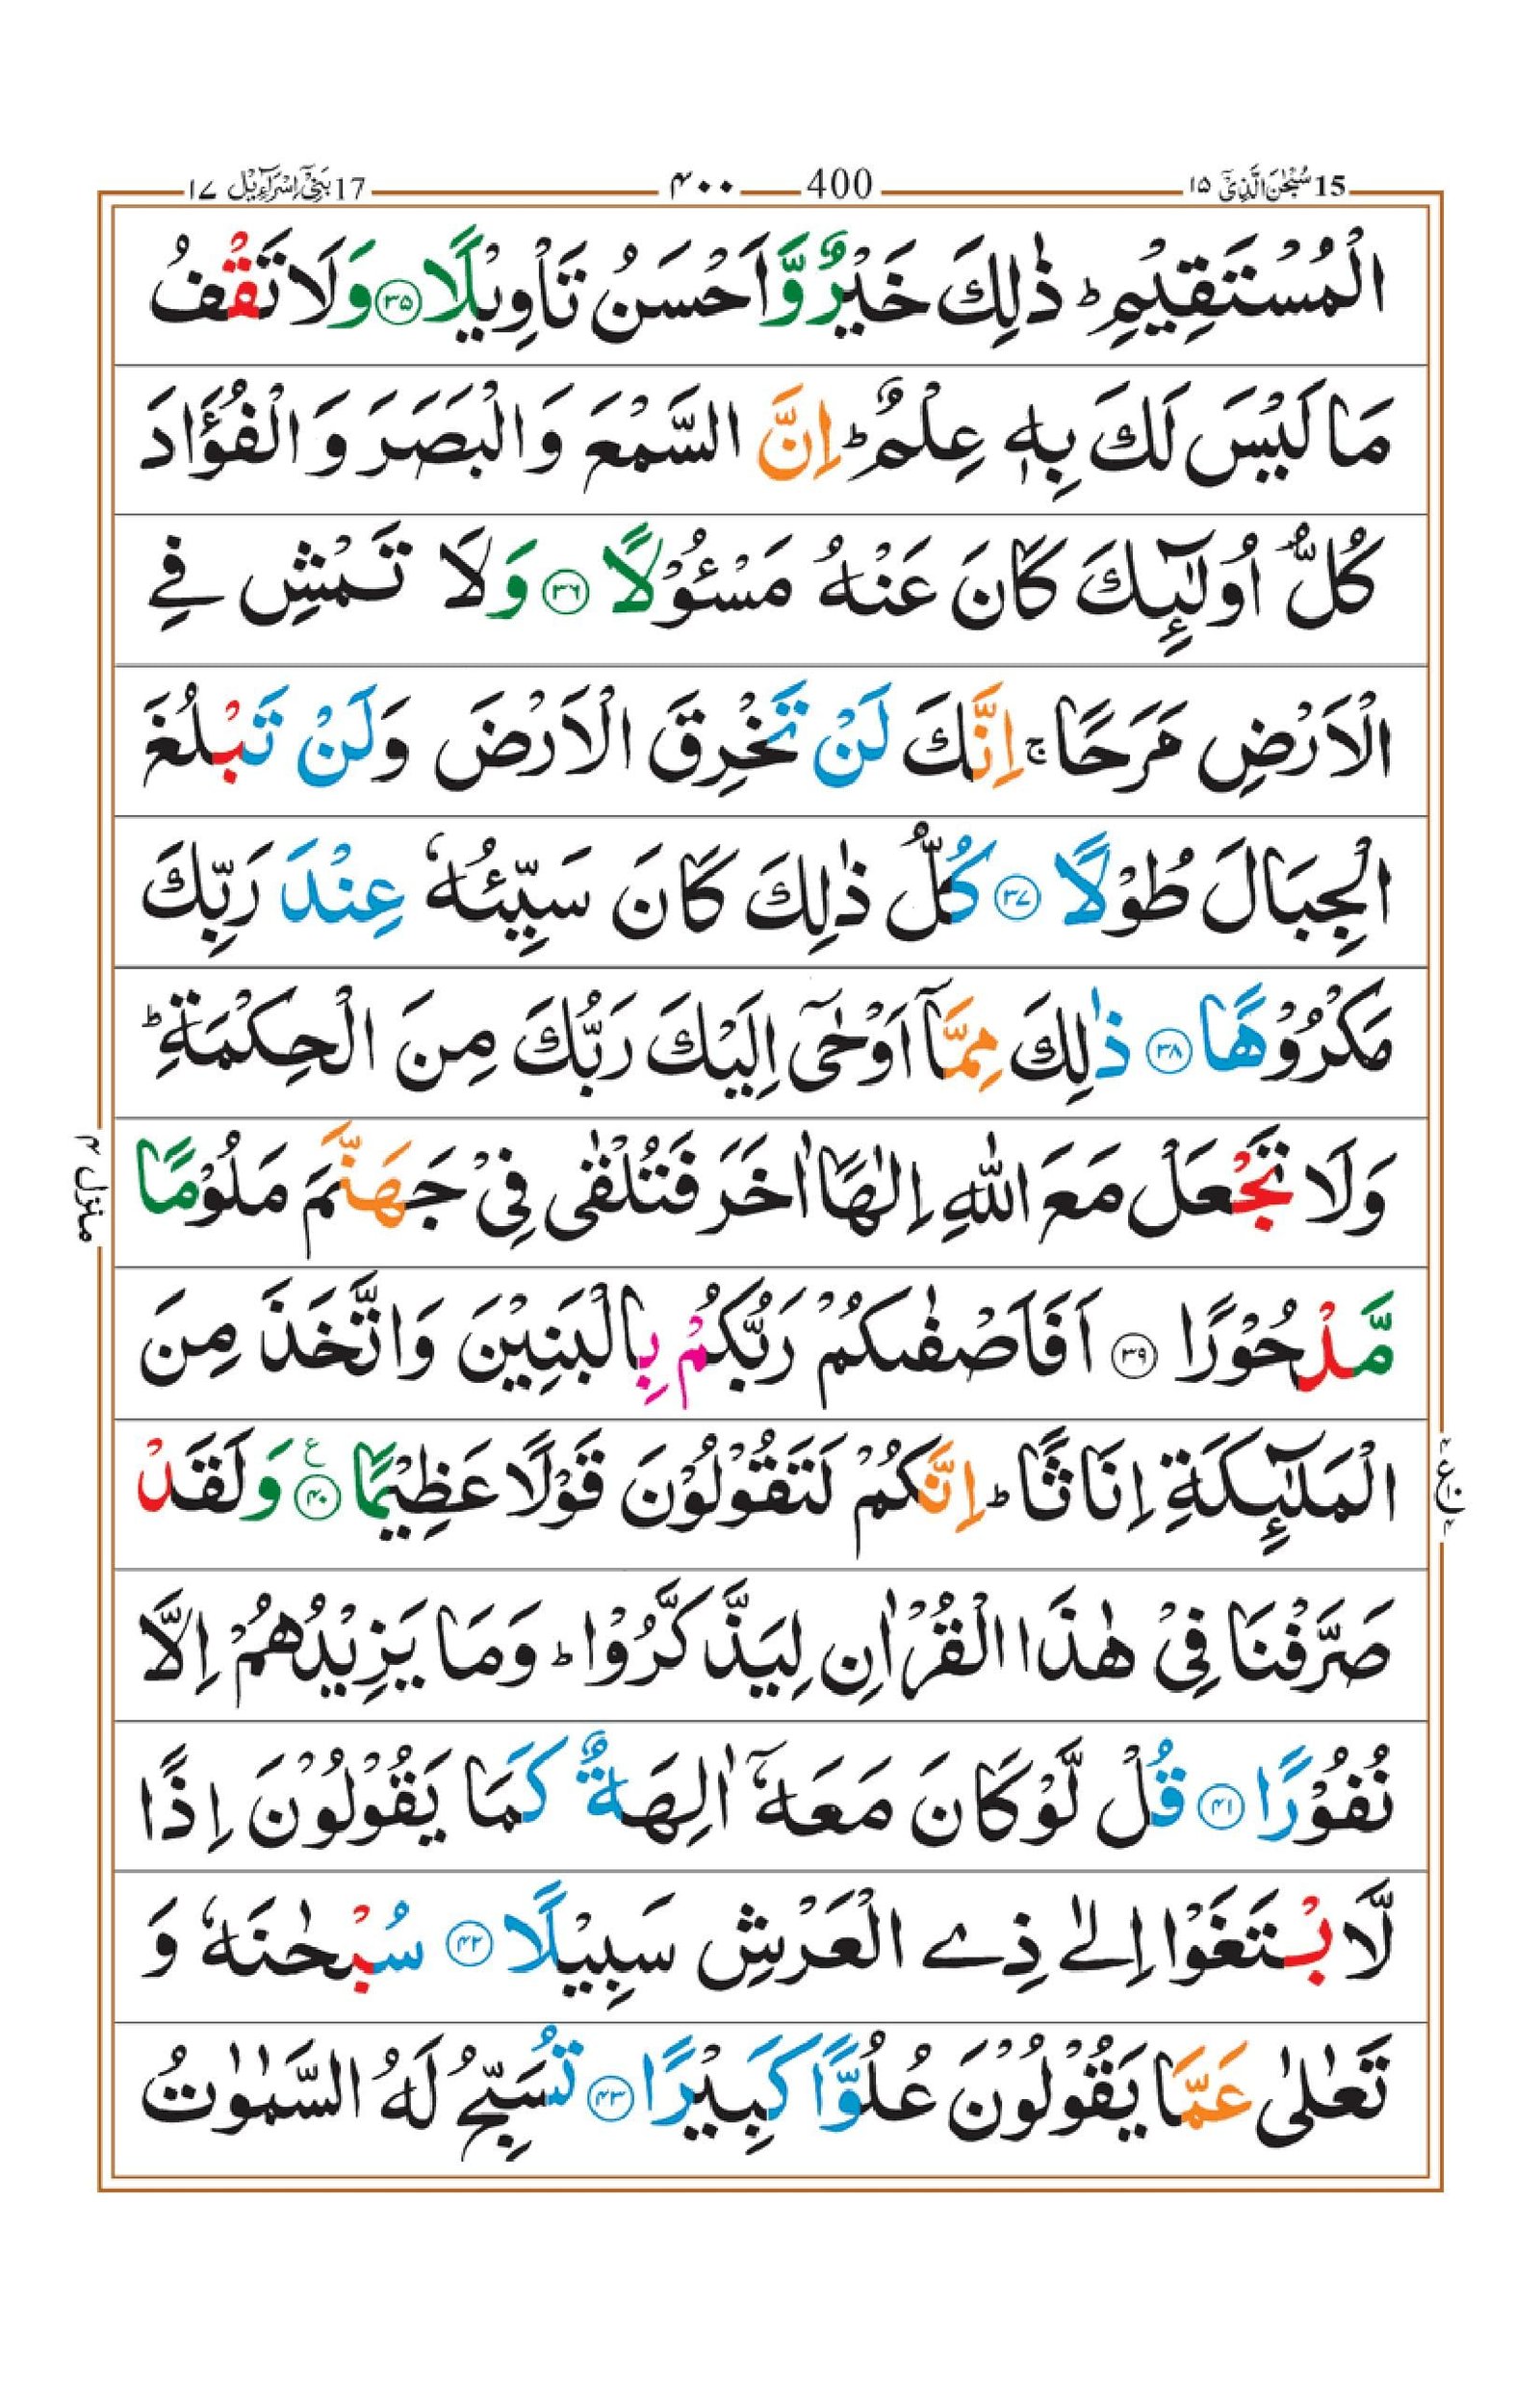 15 سُبْحٰنَ الَّذِيْٓ ١٥
400 ۴۰۰
17 بَنِيْٓ اِسْرَآءِيْل ١٧
الْمُسْتَقِيْمِ ؕ ذٰلِكَ خَيْرٌ وَّاَحْسَنُ تَاْوِيْلًا ۝۳۵ وَلَا تَقْفُ
مَا لَيْسَ لَكَ بِهٖ عِلْمٌ ؕ اِنَّ السَّمْعَ وَالْبَصَرَ وَالْفُؤَادَ
كُلُّ اُولٰٓئِكَ كَانَ عَنْهُ مَسْـُٔوْلًا ۝۳۶ وَلَا تَمْشِ فِے
الْاَرْضِ مَرَحًا ۚ اِنَّكَ لَنْ تَخْرِقَ الْاَرْضَ وَلَنْ تَبْلُغَ
الْجِبَالَ طُوْلًا ۝۳۷ كُلُّ ذٰلِكَ كَانَ سَيِّئُهٗ عِنْدَ رَبِّكَ
مَكْرُوْهًا ۝۳۸ ذٰلِكَ مِمَّاۤ اَوْحٰۤى اِلَيْكَ رَبُّكَ مِنَ الْحِكْمَةِ ؕ
وَلَا تَجْعَلْ مَعَ اللّٰهِ اِلٰهًا اٰخَرَ فَتُلْقٰى فِيْ جَهَنَّمَ مَلُوْمًا
مَّدْحُوْرًا ۝۳۹ اَفَاَصْفٰىكُمْ رَبُّكُمْ بِالْبَنِيْنَ وَاتَّخَذَ مِنَ
الْمَلٰٓئِكَةِ اِنَاثًا ؕ اِنَّكُمْ لَتَقُوْلُوْنَ قَوْلًا عَظِيْمًا ۝۴۰ ع وَلَقَدْ
صَرَّفْنَا فِيْ هٰذَا الْقُرْاٰنِ لِيَذَّكَّرُوْا ؕ وَمَا يَزِيْدُهُمْ اِلَّا
نُفُوْرًا ۝۴۱ قُلْ لَّوْ كَانَ مَعَهٗۤ اٰلِهَةٌ كَمَا يَقُوْلُوْنَ اِذًا
لَّابْتَغَوْا اِلٰے ذِے الْعَرْشِ سَبِيْلًا ۝۴۲ سُبْحٰنَهٗ وَ
تَعٰلٰى عَمَّا يَقُوْلُوْنَ عُلُوًّا كَبِيْرًا ۝۴۳ تُسَبِّحُ لَهُ السَّمٰوٰتُ
منزل ۴